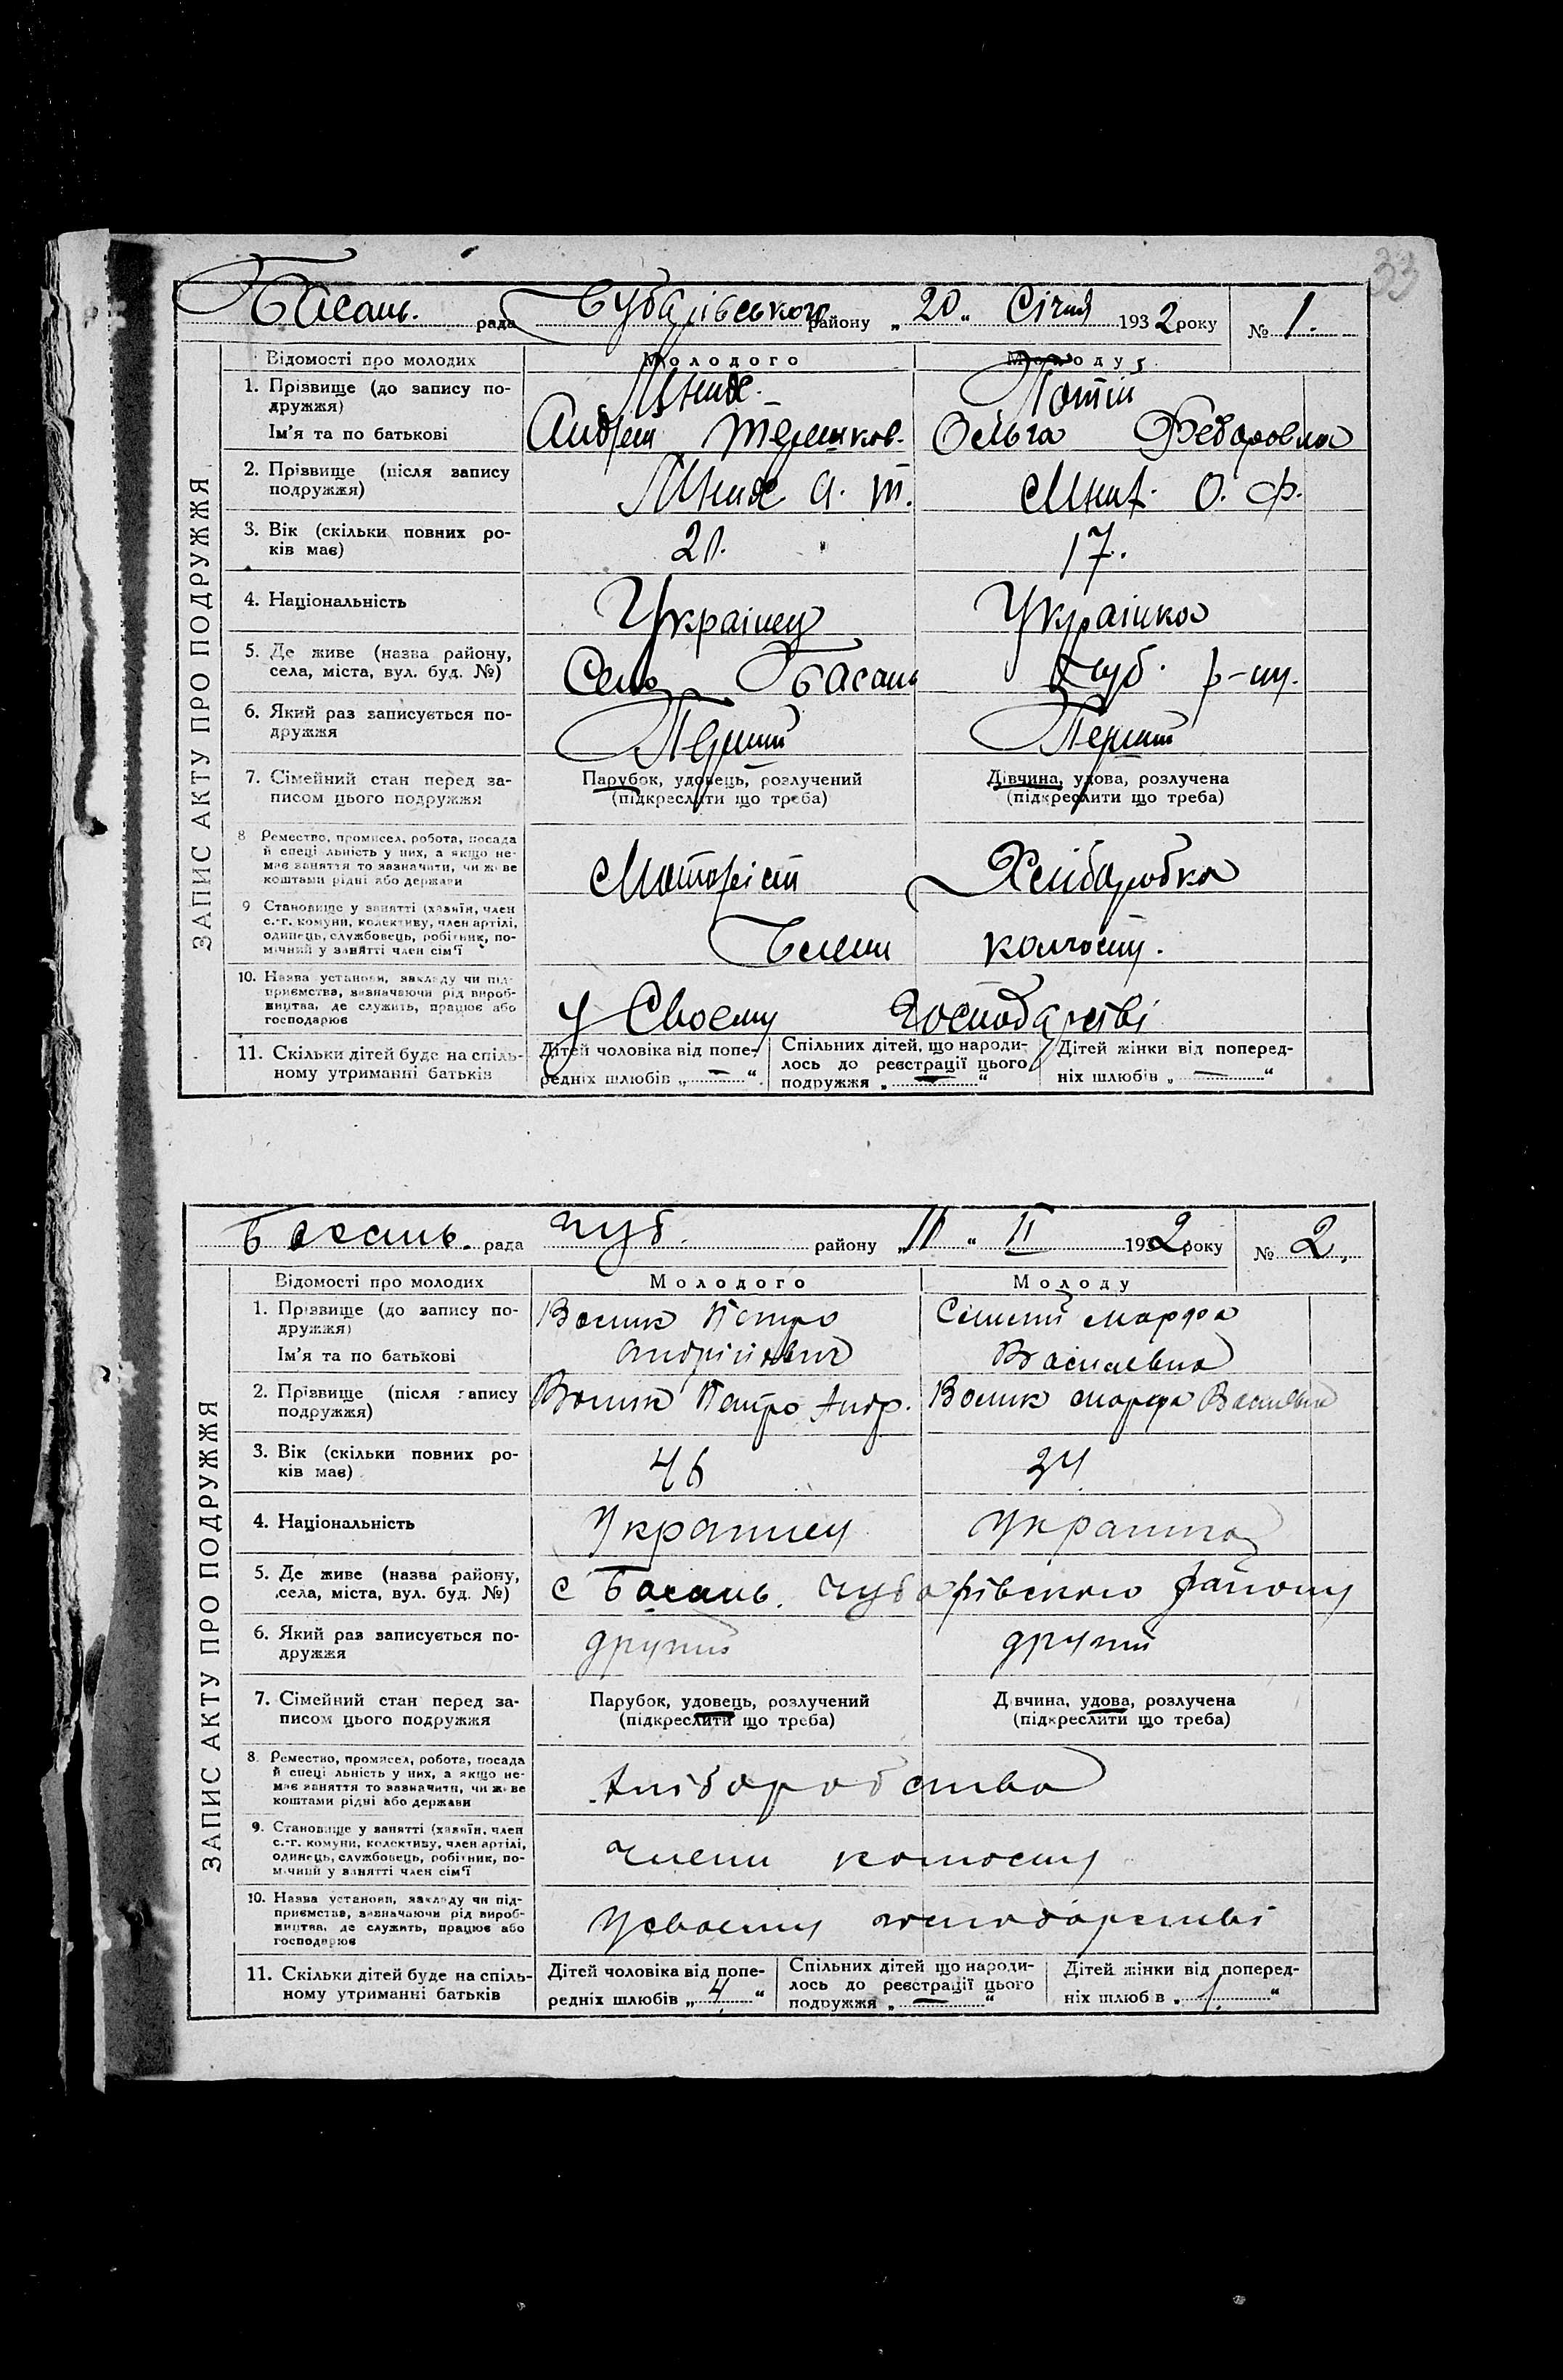 33
Басань. рада Чубарівського району „20„ Січня 1932 року № 1.
ЗАПИС АКТУ ПРО ПОДРУЖЖЯ
Відомості про молодих Молодого Молоду
1. Прізвище (до запису по-
дружжя)
Мних. Потій
Ім'я та по батькові Андрей Терешков. Ольга Федоровна
2. Прізвище (після запису
подружжя)
Мних А. Т. Мних. О. Ф.
3. Вік (скільки повних ро-
ків має)
17.
4. Національність Українец Українка
5. Де живе (назва району,
села, міста, вул. буд. №)
Село Басань Чуб. р-ну.
6. Який раз записується по-
дружжя
Перший Перший
7. Сімейний стан перед за-
писом цього подружжя
Парубок, удовець, розлучений
(підкреслити що треба)
Дівчина, удова, розлучена
(підкреслити що треба)
8 Ремество, промисел, робота, посада
й спеці льність у них, а якщо не-
має заняття то зазначити, чи живе
коштами рідні або держави
Моторіст Хліборобка
9 Становище у занятті (хазяїн, член
с.-г. комуни, колективу, член артілі,
одинець, службовець, робітник, по-
мічний у занятті член сім'ї
Член колгоспу.
10. Назва установи, закладу чи під-
приємства, зазначаючи рід вироб-
ництва, де служить, працює або
господарює
У Своему господарстві
11. Скільки дітей буде на спіль-
ному утриманні батьків
Дітей чоловіка від попе-
редніх шлюбів „ — “
Спільних дітей, що народи-
лось до реєстрації цього
подружжя „ — “
Дітей жінки від поперед-
ніх шлюбів „ — “
Басань. рада Чуб. району „11 “ II 1932 року № 2.
ЗАПИС АКТУ ПРО ПОДРУЖЖЯ
Відомості про молодих Молодого Молоду
1. Прізвище (до запису по-
дружжя)
Волик Петро Марфа
Ім'я та по батькові Андрійович Василевна
2. Прізвище (після запису
подружжя)
Волик Петро Андр. Волик Марфа Василевна
3. Вік (скільки повних ро-
ків має)
46 34
4. Національність Украинец Украинка
5. Де живе (назва району,
села, міста, вул. буд. №)
с Басань. Чубарівского району
6. Який раз записується по-
дружжя
другий другий
7. Сімейний стан перед за-
писом цього подружжя
Парубок, удовець, розлучений
(підкреслити що треба)
Дівчина, удова, розлучена
(підкреслити що треба)
8. Ремество, промисел, робота, посада
й спеці льність у них, а якщо не-
має заняття то зазначити, чи живе
коштами рідні або держави
Хліборобство
9. Становище у занятті (хазяїн, член
с.-г. комуни, колективу, член артілі,
одинець, службовець, робітник, по-
мічний у занятті член сім'ї
член колгоспу
10. Назва установи, закладу чи під-
приємства, зазначаючи рід вироб-
ництва, де служить, працює або
господарює
У своему господарстві
11. Скільки дітей буде на спіль-
ному утриманні батьків
Дітей чоловіка від попе-
редніх шлюбів „ 4 “
Спільних дітей що народи-
лось до реєстрації цього
подружжя „ — “
Дітей жінки від поперед-
ніх шлюб в „ 1. “